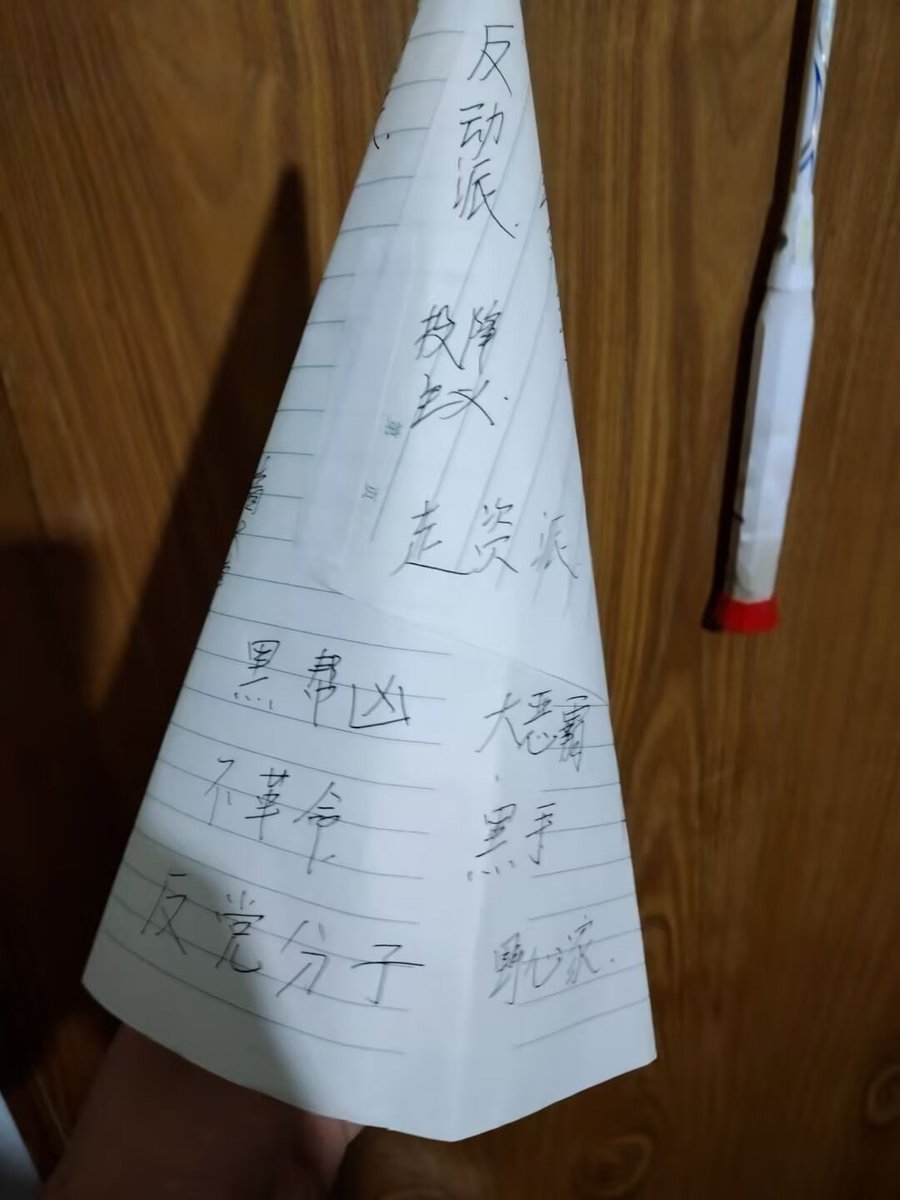 反动派.
投降
主义.
走资派
黑帮凶
大恶霸
不革命
黑手
反党分子
野心家.
第
页